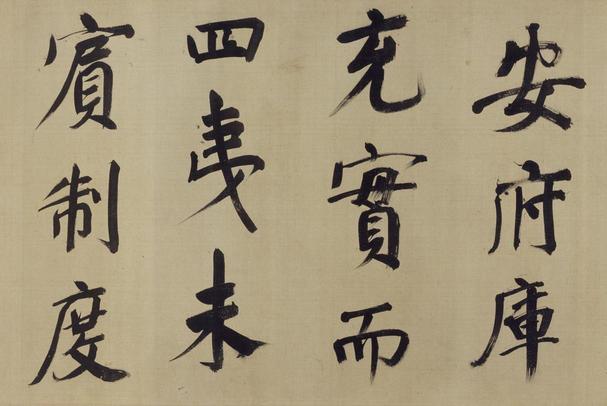 安府庫
充實而
四夷未
賓制度